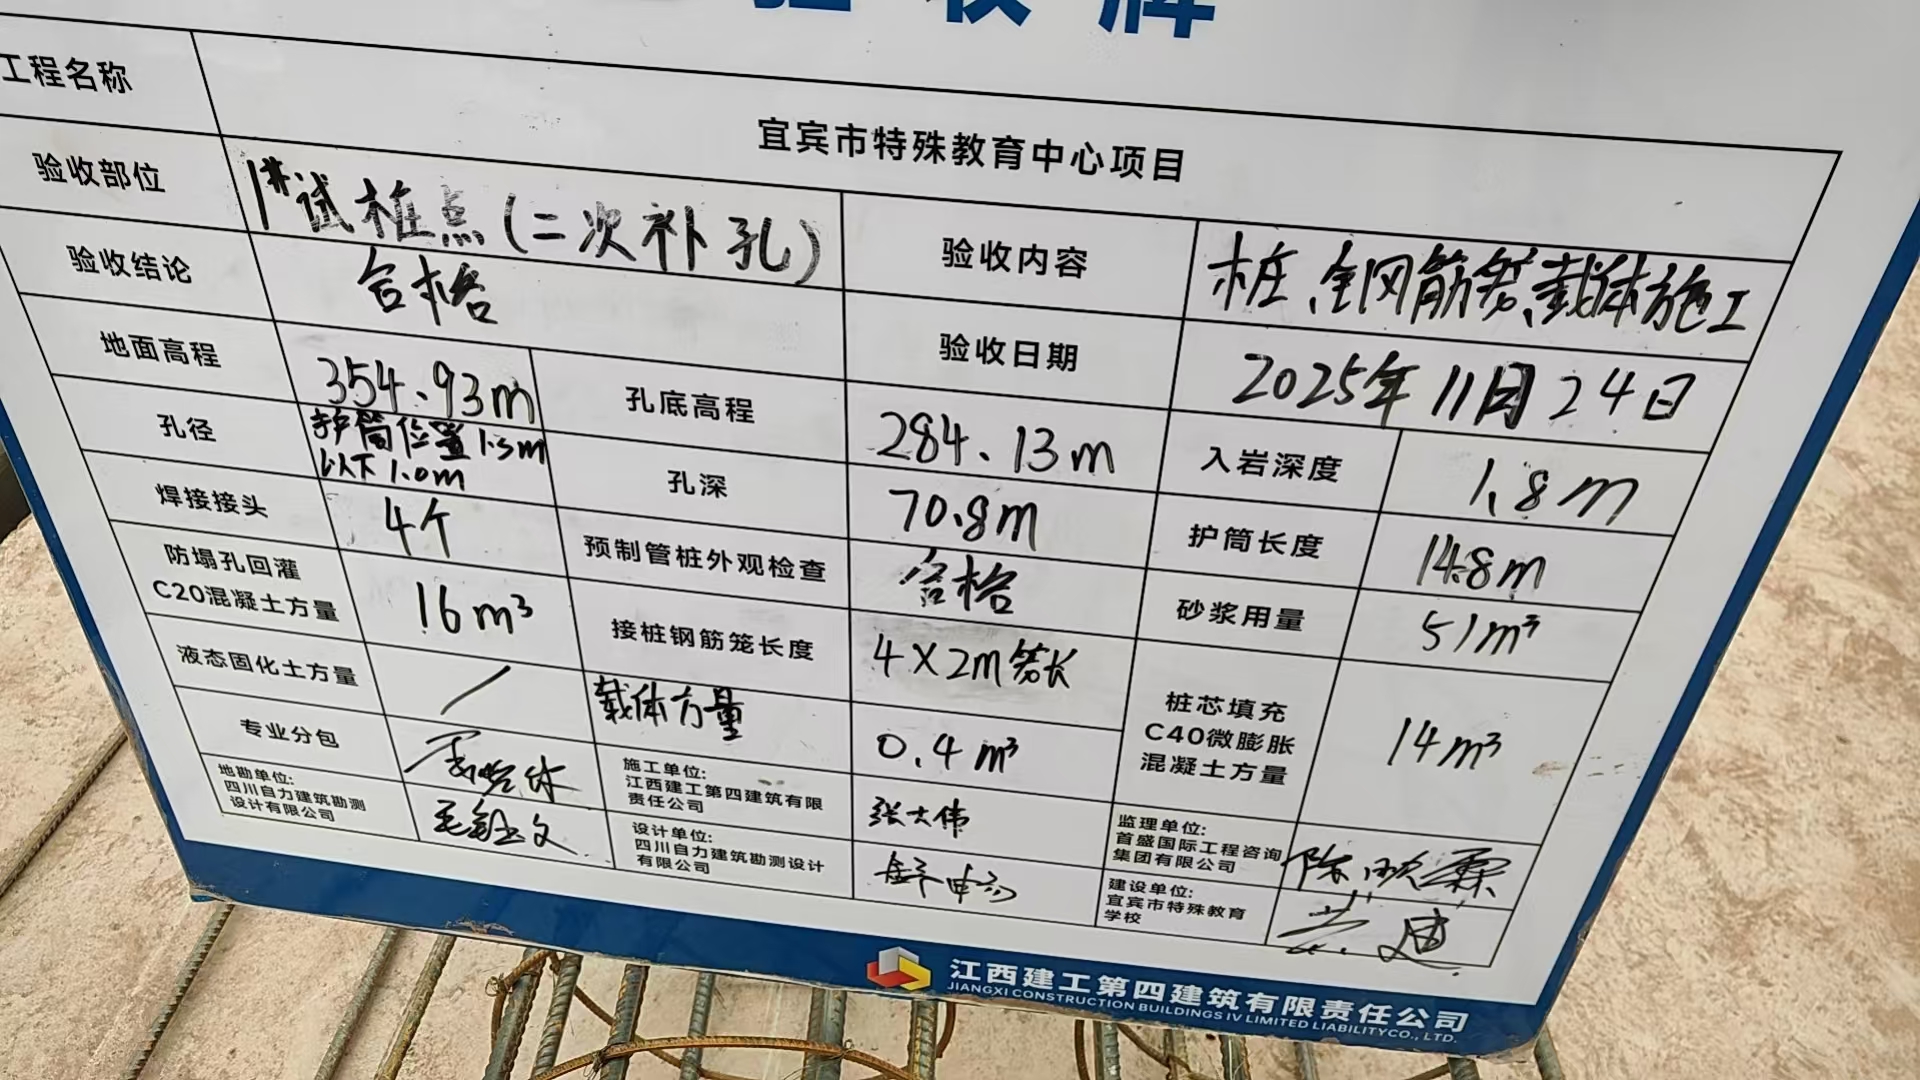 验收牌
工程名称
宜宾市特殊教育中心项目
验收部位
1#试桩点(二次补孔)
验收内容
桩、钢筋笼、载体施工
验收结论
合格
验收日期
2025年11月24日
地面高程
354.93m
孔底高程
284.13m
入岩深度
1.8m
孔径
护筒位置1.3m
以下1.0m
孔深
70.8m
护筒长度
14.8m
焊接接头
4个
预制管桩外观检查
合格
砂浆用量
51m³
防塌孔回灌
C20混凝土方量
16m³
接桩钢筋笼长度
4×2m笼长
桩芯填充
C40微膨胀
混凝土方量
14m³
液态固化土方量
/
载体方量
0.4m³
专业分包
施工单位:
江西建工第四建筑有限
责任公司
张大伟
监理单位:
首盛国际工程咨询
集团有限公司
地勘单位:
四川自力建筑勘测
设计有限公司
设计单位:
四川自力建筑勘测设计
有限公司
建设单位:
宜宾市特殊教育
学校
江西建工第四建筑有限责任公司
JIANGXI CONSTRUCTION BUILDINGS IV LIMITED LIABILITYCO., LTD.